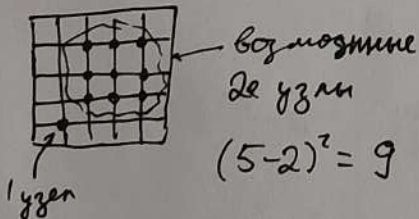 возможные
2е узлы
(5-2)² = 9
1 узел